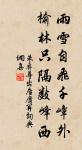 雨雪自飛千嶂外
榆林只隔數峰西
朱彝尊出居庸關詞典
網